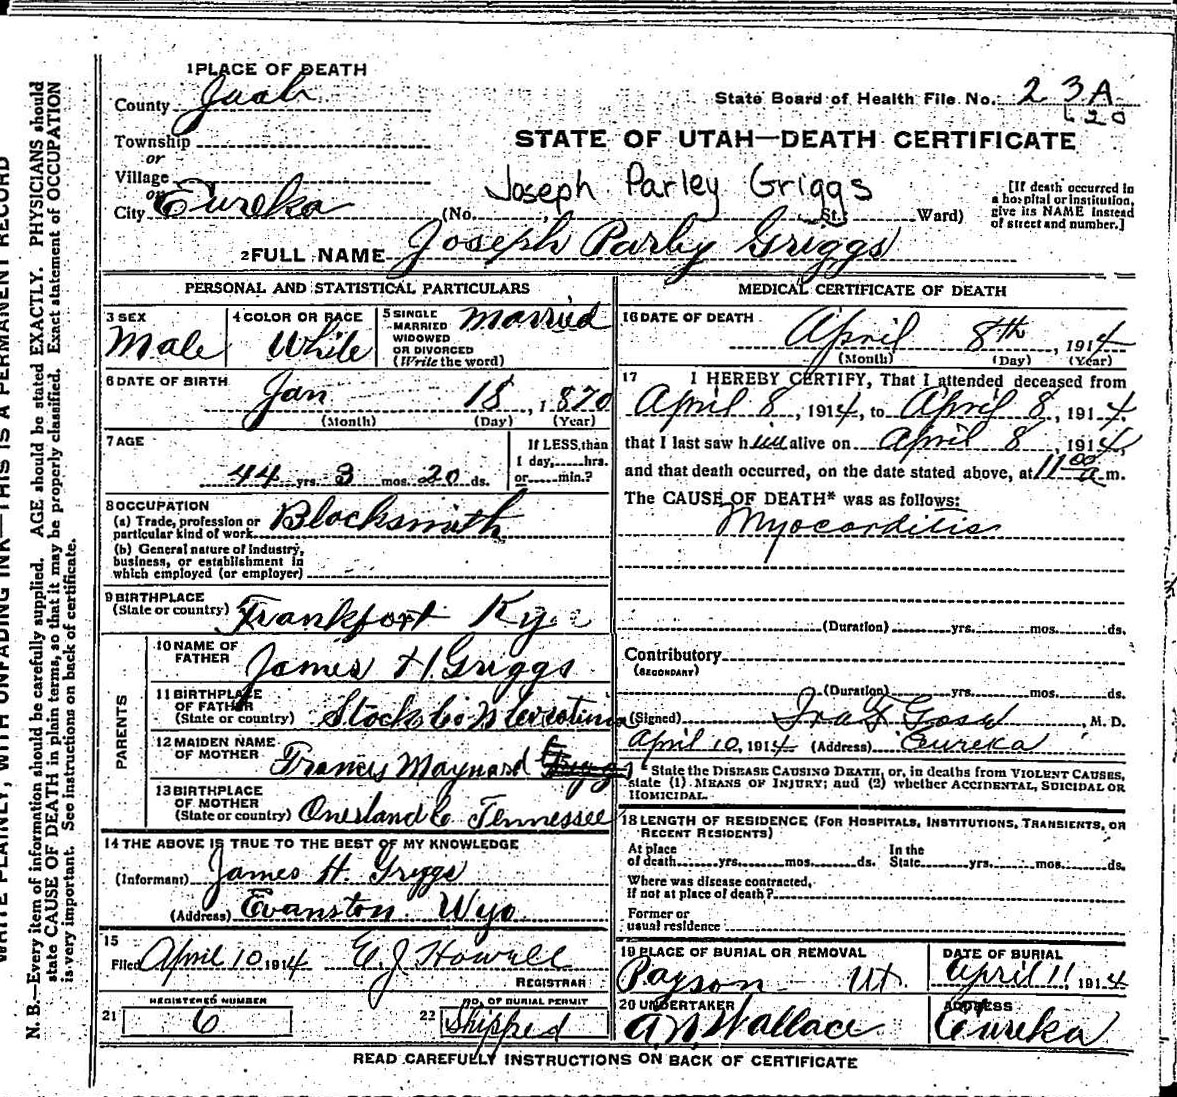 WRITE PLAINLY, WITH UNFADING INK—THIS IS A PERMANENT RECORD
N. B.—Every item of information should be carefully supplied. AGE should be stated EXACTLY. PHYSICIANS should
state CAUSE OF DEATH in plain terms, so that it may be properly classified. Exact statement of OCCUPATION
is very important. See instructions on back of certificate.
1 PLACE OF DEATH
County Juab
State Board of Health File No. 23A
120
Township
or
Village
or
City Eureka
STATE OF UTAH—DEATH CERTIFICATE
Joseph Parley Griggs
(No. , St.; Ward)
[If death occurred in
a hospital or institution,
give its NAME instead
of street and number.]
2 FULL NAME Joseph Parley Griggs
PERSONAL AND STATISTICAL PARTICULARS
3 SEX
Male
4 COLOR OR RACE
White
5 SINGLE
MARRIED
WIDOWED
OR DIVORCED
(Write the word)
Married
6 DATE OF BIRTH
Jan 18, 1870
(Month) (Day) (Year)
7 AGE
44 yrs. 3 mos. 20 ds.
If LESS than
1 day, hrs.
or min.?
8 OCCUPATION
(a) Trade, profession or
particular kind of work Blacksmith
(b) General nature of industry,
business, or establishment in
which employed (or employer)
9 BIRTHPLACE
(State or country) Frankfort Ky
PARENTS
10 NAME OF
FATHER James H Griggs
11 BIRTHPLACE
OF FATHER
(State or country) Co N
12 MAIDEN NAME
OF MOTHER Francis Maynard
13 BIRTHPLACE
OF MOTHER
(State or country) Co Tennessee
14 THE ABOVE IS TRUE TO THE BEST OF MY KNOWLEDGE
(Informant) James H. Griggs
(Address) Evanston Wyo
15
Filed April 10 1914 E. J. Howell
REGISTRAR
21 REGISTERED NUMBER
6
22 NO. OF BURIAL PERMIT
Shipped
MEDICAL CERTIFICATE OF DEATH
16 DATE OF DEATH
April 8th, 1914
(Month) (Day) (Year)
17 I HEREBY CERTIFY, That I attended deceased from
April 8, 1914, to April 8, 1914,
that I last saw him alive on April 8 1914,
and that death occurred, on the date stated above, at 11 00 a m.
The CAUSE OF DEATH* was as follows:
Myocarditis
(Duration) yrs. mos. ds.
Contributory
(SECONDARY)
(Duration) yrs. mos. ds.
(Signed) Ira, M. D.
April 10, 1914 (Address) Eureka
* State the DISEASE CAUSING DEATH, or, in deaths from VIOLENT CAUSES,
state (1) MEANS OF INJURY; and (2) whether ACCIDENTAL, SUICIDAL OR
HOMICIDAL.
18 LENGTH OF RESIDENCE (FOR HOSPITALS, INSTITUTIONS, TRANSIENTS, OR
RECENT RESIDENTS)
At place In the
of death yrs. mos. ds. State yrs. mos. ds.
Where was disease contracted,
if not at place of death?
Former or
usual residence
19 PLACE OF BURIAL OR REMOVAL
Payson Ut.
DATE OF BURIAL
April 11, 1914
20 UNDERTAKER
A. N. Wallace
ADDRESS
Eureka
READ CAREFULLY INSTRUCTIONS ON BACK OF CERTIFICATE